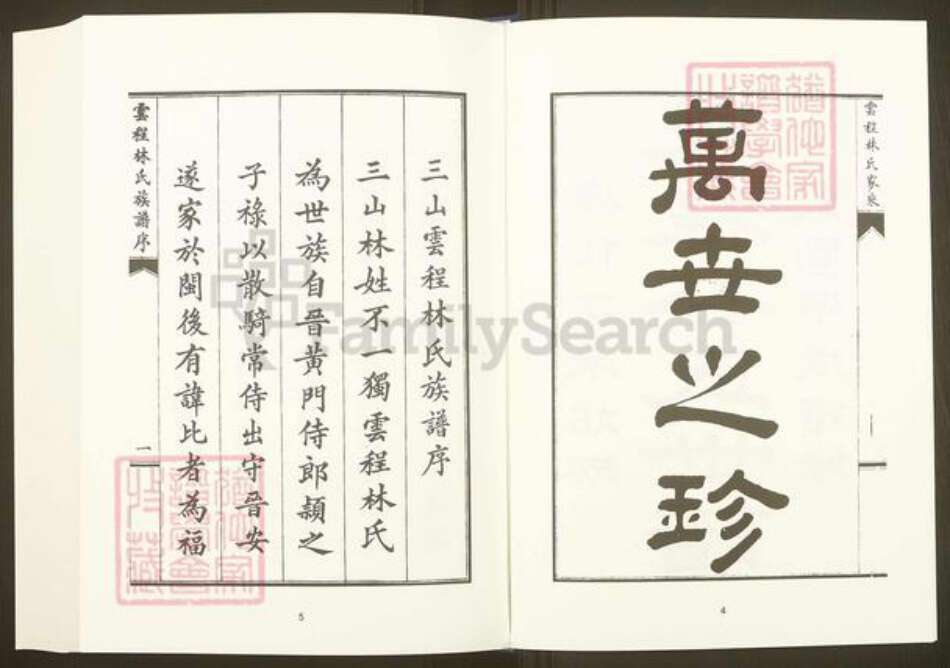 萬世之珍
雲程林氏家乘
一
4
三山雲程林氏族譜序
三山林姓不一獨雲程林氏
為世族自晉黃門侍郎潁之
子祿以散騎常侍出守晉安
遂家於閩後有諱比者為福
雲程林氏族譜序
一
5
FamilySearch